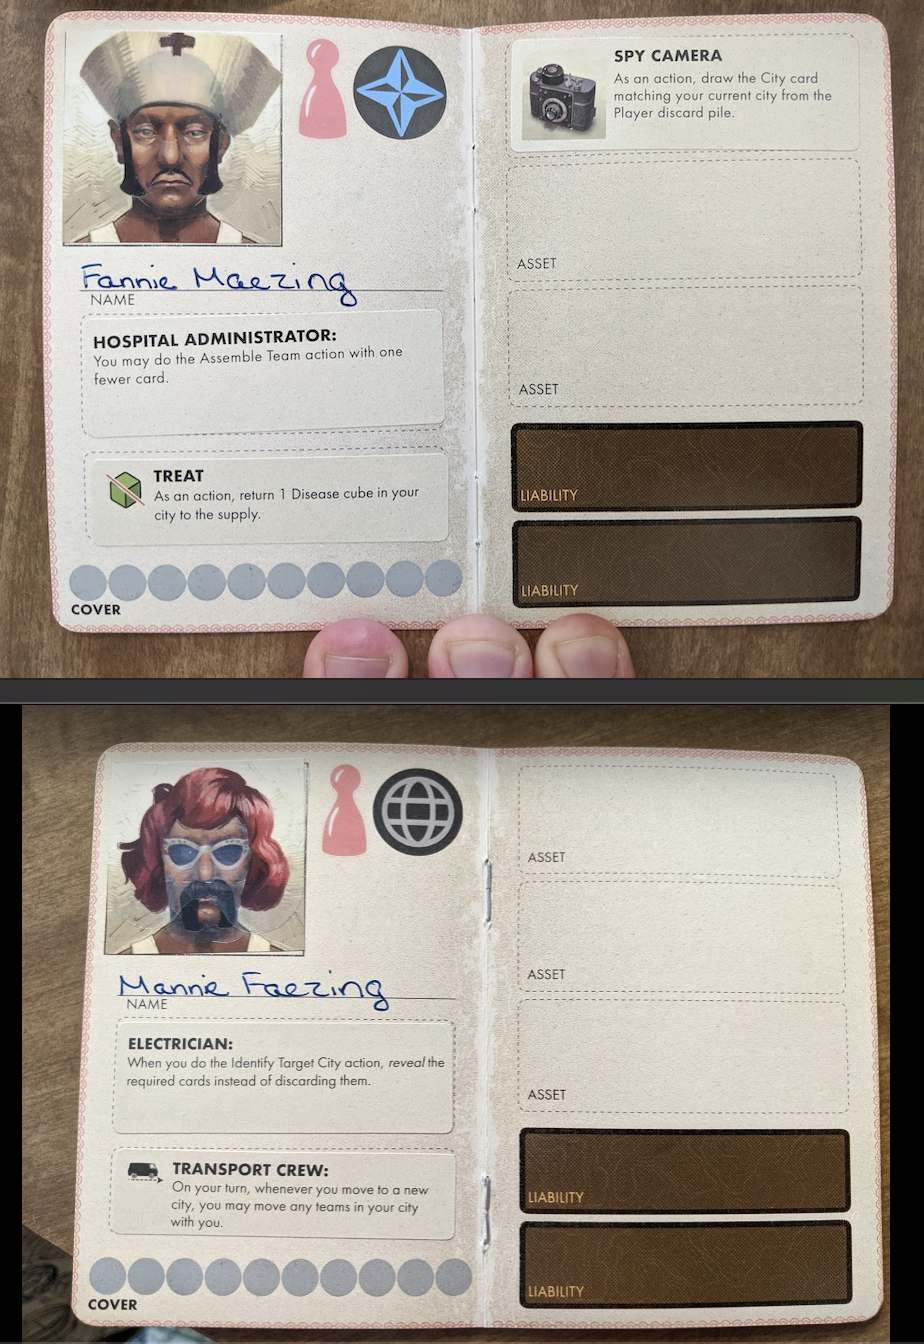 Fannie Maezing
NAME
HOSPITAL ADMINISTRATOR:
You may do the Assemble Team action with one
fewer card.
TREAT
As an action, return 1 Disease cube in your
city to the supply.
COVER
SPY CAMERA
As an action, draw the City card
matching your current city from the
Player discard pile.
ASSET
ASSET
LIABILITY
LIABILITY
Mannie Faezing
NAME
ELECTRICIAN:
When you do the Identify Target City action, reveal the
required cards instead of discarding them.
TRANSPORT CREW:
On your turn, whenever you move to a new
city, you may move any teams in your city
with you.
COVER
ASSET
ASSET
ASSET
LIABILITY
LIABILITY